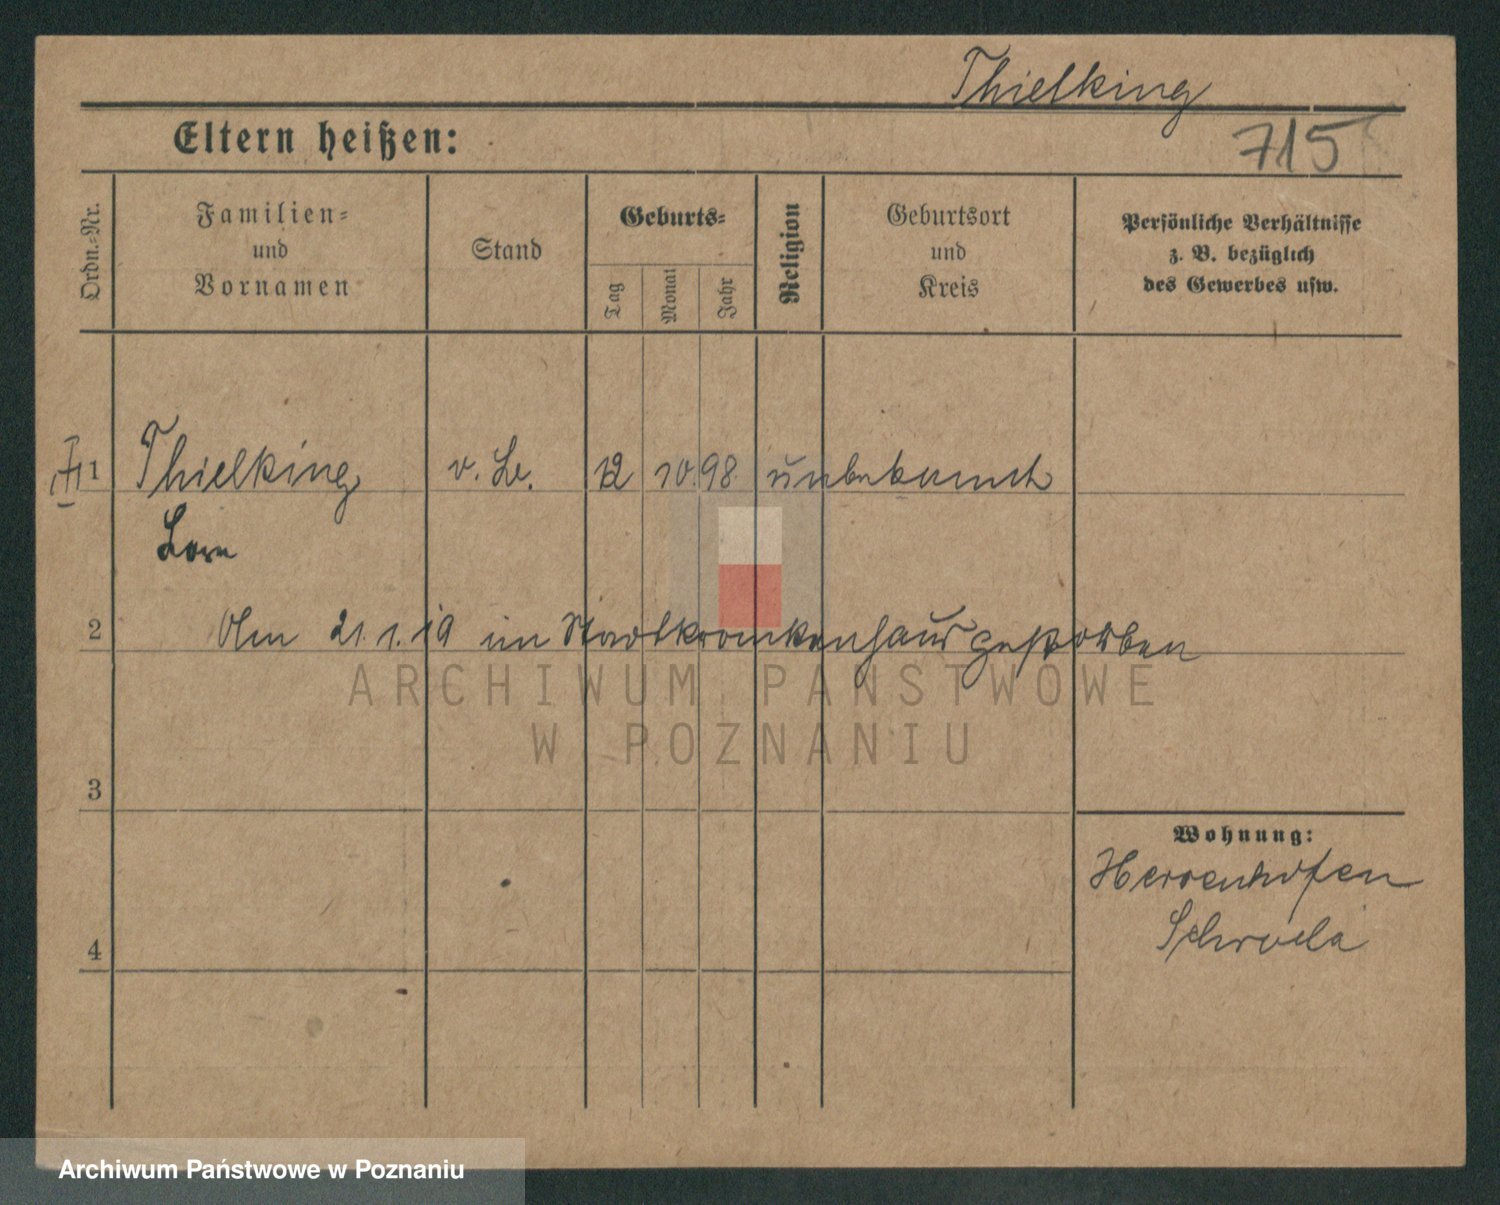 Thielking
715
Eltern heißen:
Ordn.-Nr.
Familien-
und
Vornamen
Stand
Geburts-
Tag
Monat
Jahr
Religion
Geburtsort
und
Kreis
Persönliche Verhältnisse
z. B. bezüglich
des Gewerbes usw.
1 Thielking v. 12 10. 98. unbekannt
2 Am 21. 1. 19 im Stadtkrankenhaus gestorben
ARCHIWUM PAŃSTWOWE
W POZNANIU
3
Wohnung:
Herrenhofen
Schroda
4
Archiwum Państwowe w Poznaniu